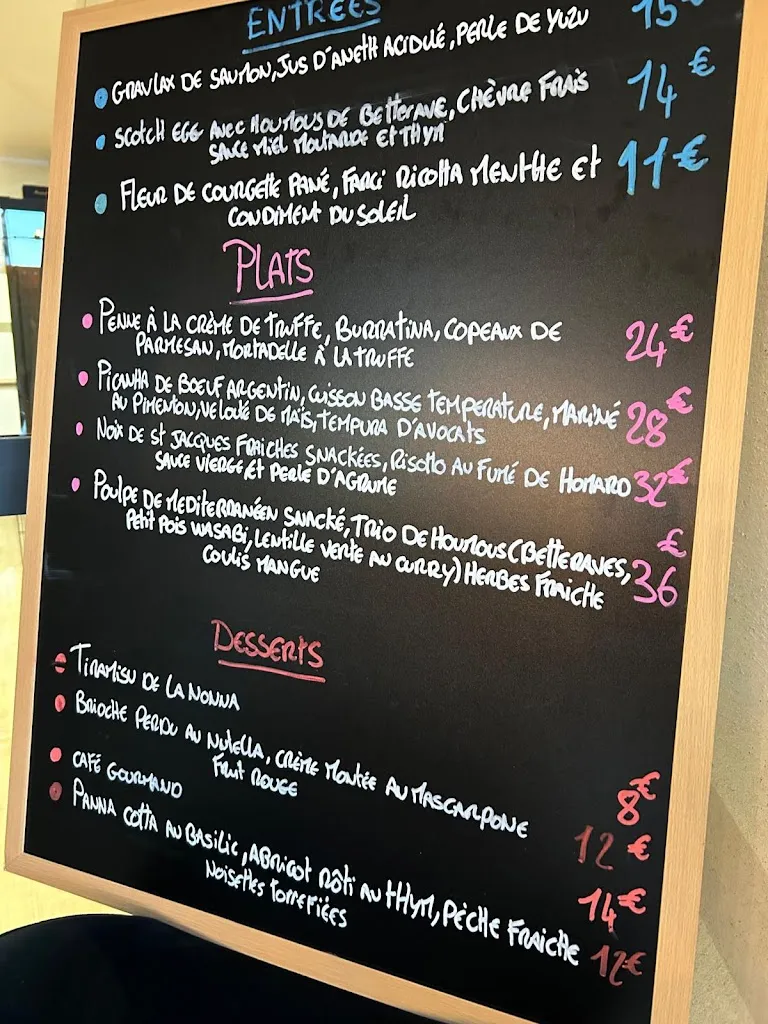 ENTRÉES
GRAVLAX DE SAUMON, JUS D'ANETH ACIDULÉ, PERLE DE YUZU 15€
SCOTCH EGG AVEC HOUMOUS DE BETTERAVE, CHÈVRE FRAIS 14€
SAUCE MIEL MOUTARDE ET THYM
FLEUR DE COURGETTE PANÉ, FARCI RICOTTA MENTHE ET 11€
CONDIMENT DU SOLEIL
PLATS
PENNE À LA CRÈME DE TRUFFE, BURRATINA, COPEAUX DE 24€
PARMESAN, MORTADELLE À LA TRUFFE
PICANHA DE BOEUF ARGENTIN, CUISSON BASSE TEMPERATURE, MARINÉ 28€
AU PIMENTON, VELOUTÉ DE MAÏS, TEMPURA D'AVOCATS
NOIX DE ST JACQUES FRAICHES SNACKÉES, RISOTTO AU FUMÉ DE HOMARD 32€
SAUCE VIERGE, ET PERLE D'AGRUME
POULPE DE MEDITERRANÉEN SNACKÉ, TRIO DE HOUMOUS (BETTERAVES, 36€
PETIT POIS WASABI, LENTILLE VERTE AU CURRY) HERBES FRAICHE
COULIS MANGUE
DESSERTS
TIRAMISU DE LA NONNA 8€
BRIOCHE PERDU AU NUTELLA, CRÈME MONTÉE AU MASCARPONE 12€
FRUIT ROUGE
CAFÉ GOURMAND 14€
PANNA COTTA AU BASILIC, ABRICOT RÔTI AU THYM, PÊCHE FRAICHE 12€
NOISETTES TORREFIÉES